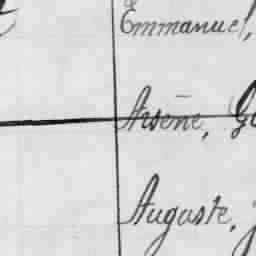 Emmanuel,
Arsène,
Auguste,